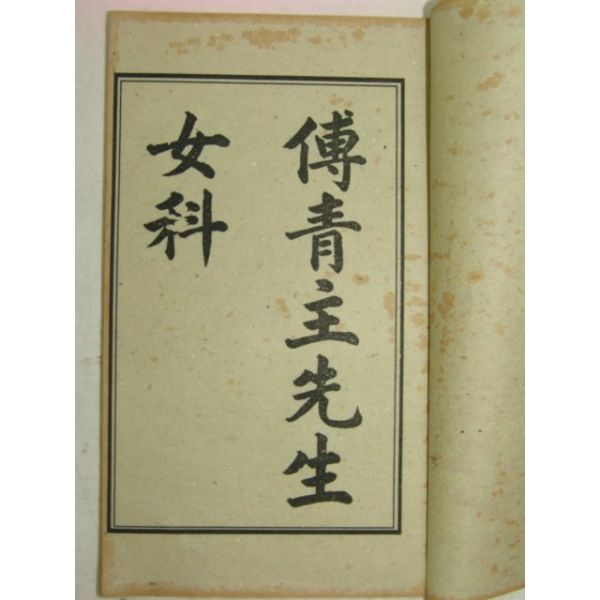 傅青主先生
女科